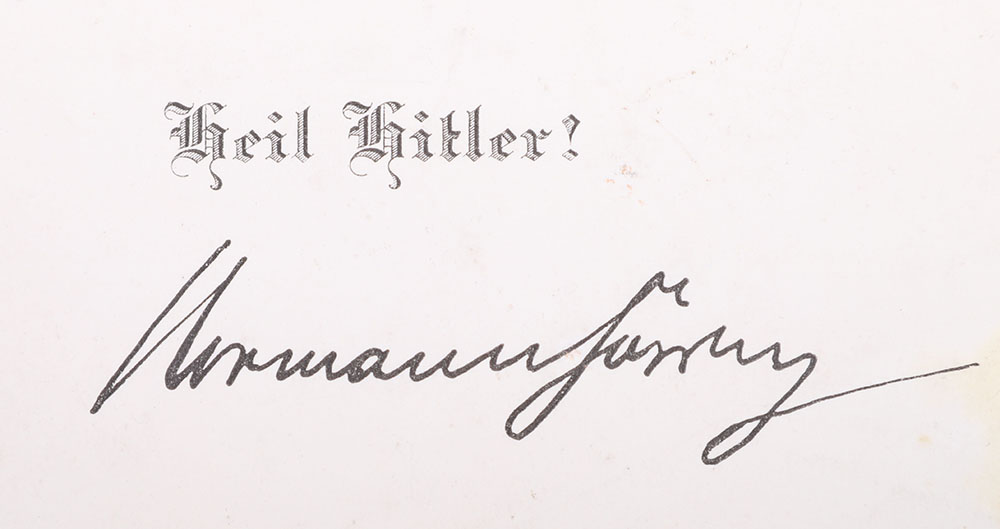 Heil Hitler!
Hermann Göring